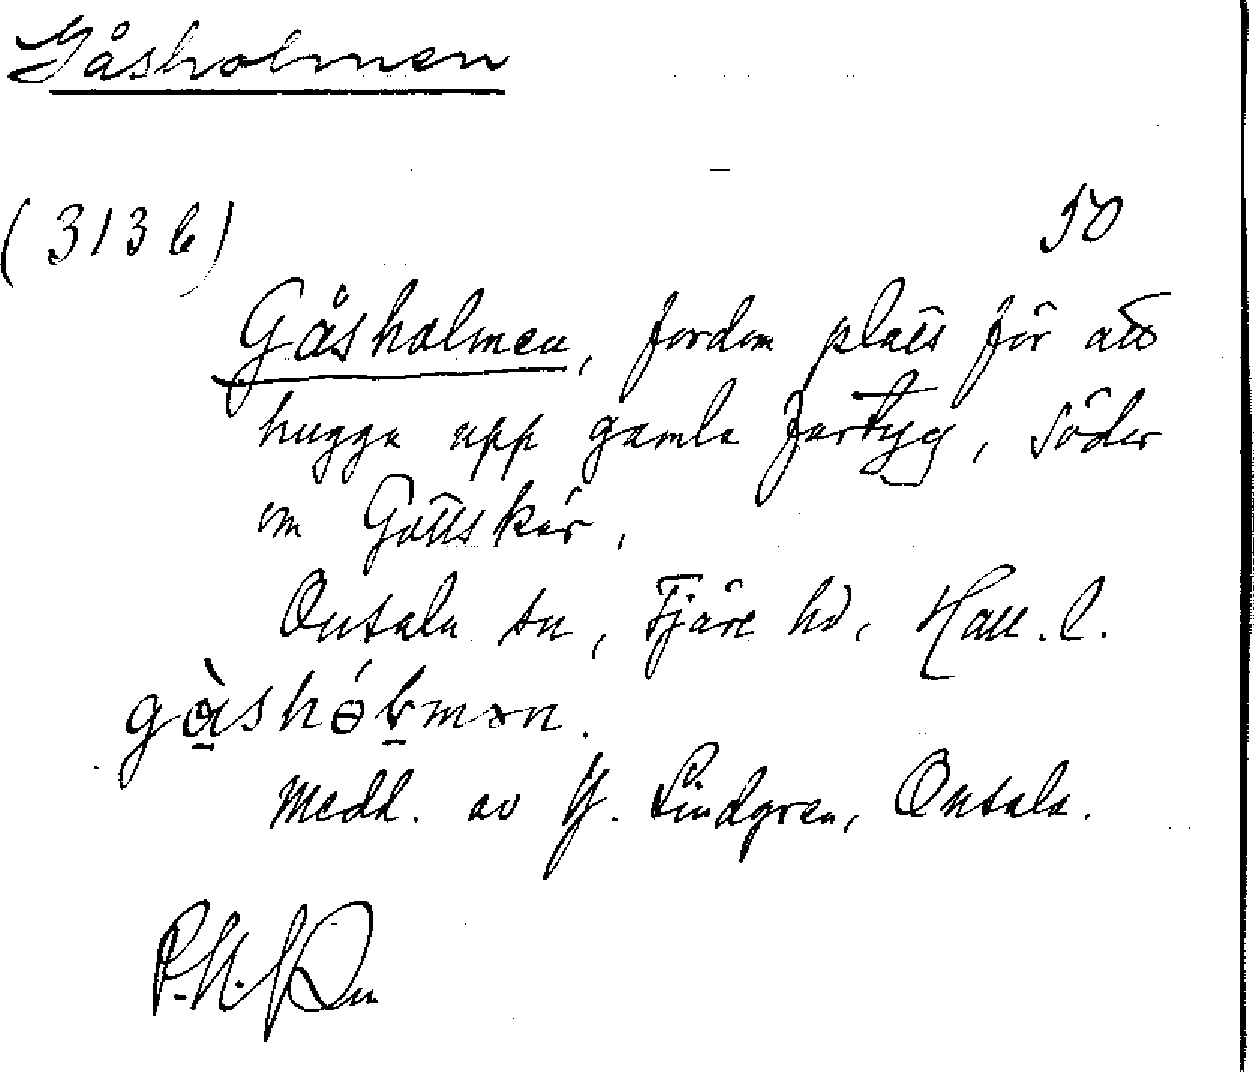 Gåsholmen
(313 b) 50
Gåsholmen, fordom plats för att
hugga upp gamla fartyg, söder
om Gottskär,
Onsala sn, Fjäre hd, Hall. l.
Medd. av Lindgren, Onsala.